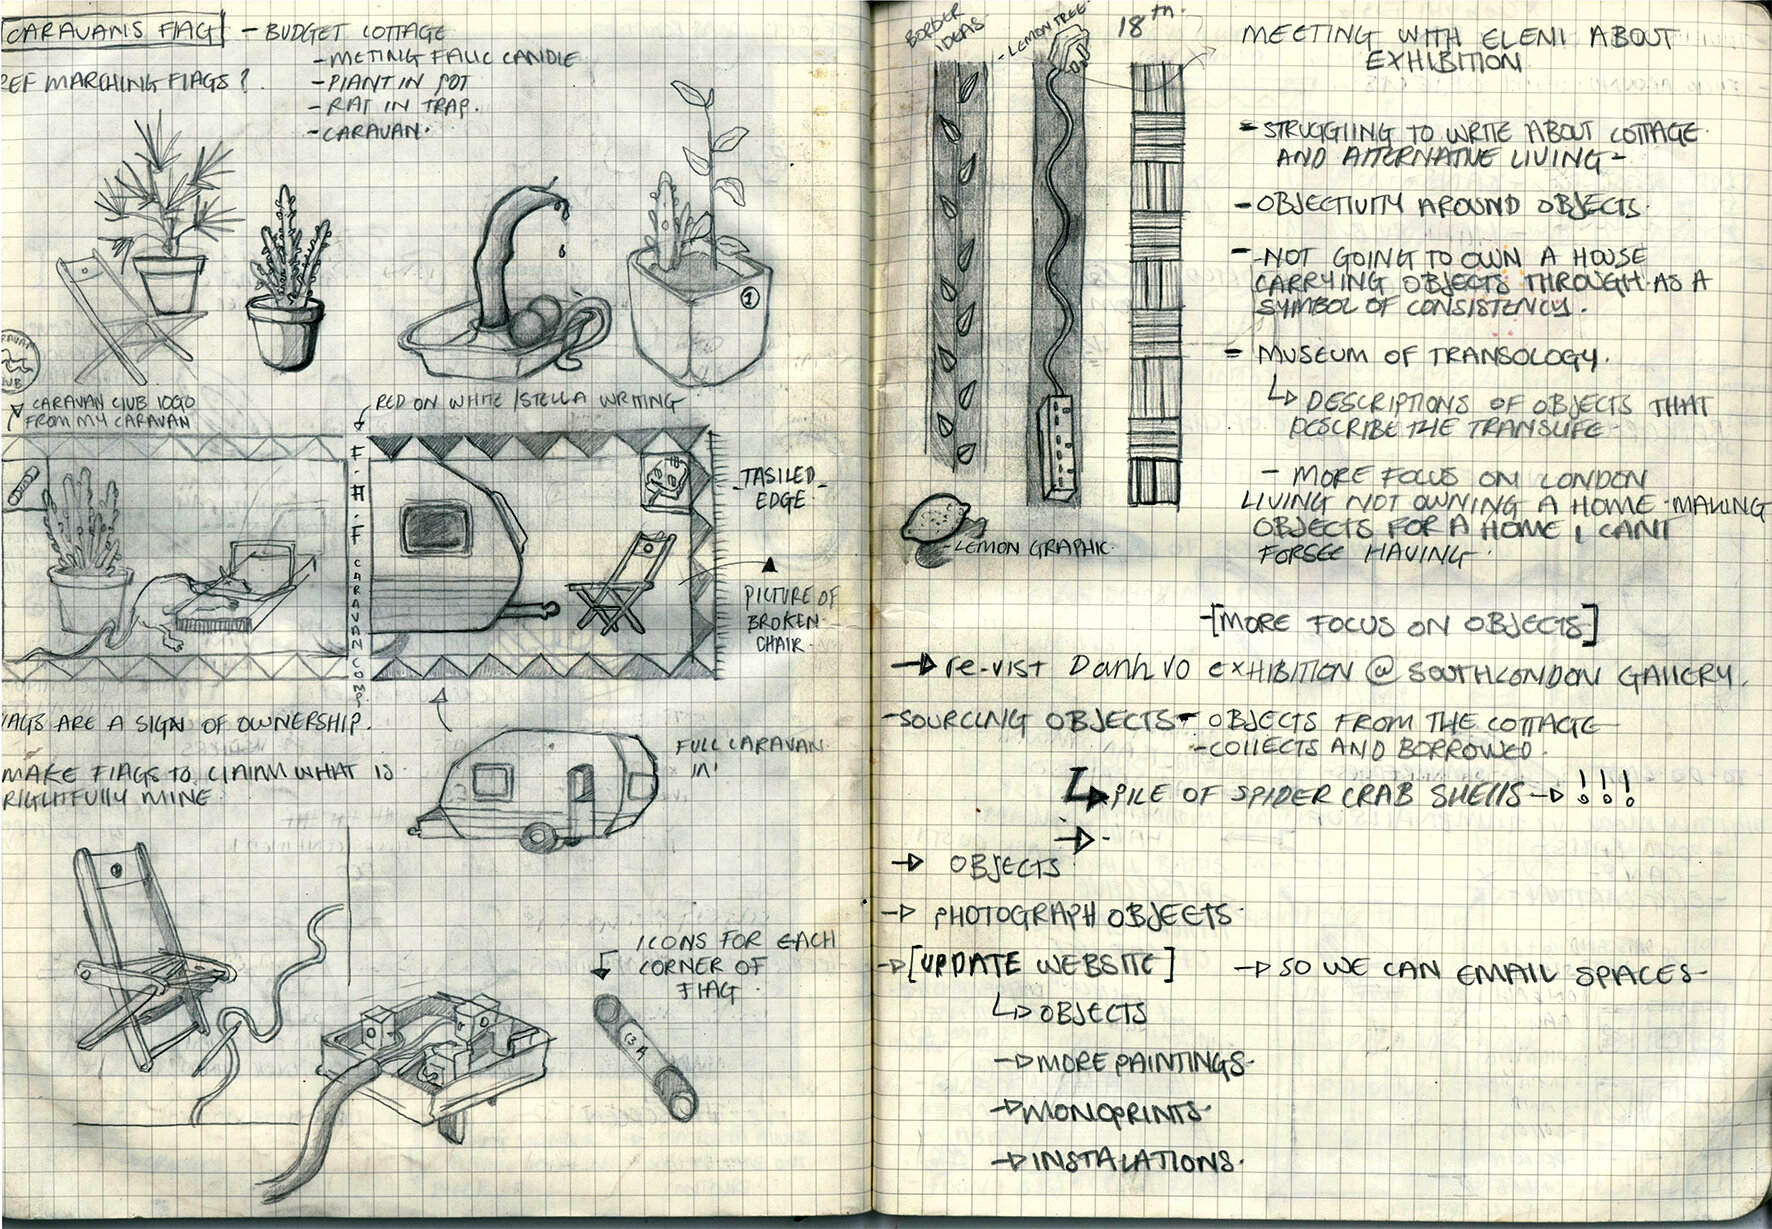 CARAVANS FLAG - BUDGET COTTAGE
REF MARCHING FLAGS?
- METING FALIC CANDLE
- PLANT IN POT
- RAT IN TRAP.
- CARAVAN.
1
CARAVAN
CLUB
CARAVAN CLUB LOGO
FROM MY CARAVAN
RED ON WHITE / STELLA WRITING
F.H.F CARAVAN COMP.
TASILED
EDGE
PICTURE OF
BROKEN
CHAIR.
FLAGS ARE A SIGN OF OWNERSHIP.
MAKE FLAGS TO CLAIM WHAT IS
RIGHTFULLY MINE
FULL CARAVAN
IN'
ICONS FOR EACH
CORNER OF
FLAG
13A
BORDER
IDEAS.
- LEMON TREE
18th.
- LEMON GRAPHIC.
MEETING WITH ELENI ABOUT
EXHIBITION
- STRUGGLING TO WRITE ABOUT COTTAGE
AND ALTERNATIVE LIVING -
- OBJECTIVITY AROUND OBJECTS.
- NOT GOING TO OWN A HOUSE
CARRYING OBJECTS THROUGH AS A
SYMBOL OF CONSISTENCY.
- MUSEUM OF TRANSOLOGY.
DESCRIPTIONS OF OBJECTS THAT
DESCRIBE THE TRANS LIFE
- MORE FOCUS ON LONDON
LIVING NOT OWNING A HOME - MAKING
OBJECTS FOR A HOME I CANT
FORSEE HAVING.
-[MORE FOCUS ON OBJECTS]
→ re-vist Danh vo EXHIBITION @ SOUTH LONDON GALLERY.
- SOURCING OBJECTS - OBJECTS FROM THE COTTAGE
- COLLECTS AND BORROWED.
PILE OF SPIDER CRAB SHELLS → !!!
→ -
→ OBJECTS
→ PHOTOGRAPH OBJECTS
→ [UPDATE WEBSITE] → SO WE CAN EMAIL SPACES
OBJECTS
→ MORE PAINTINGS
→ MONOPRINTS
→ INSTALATIONS.